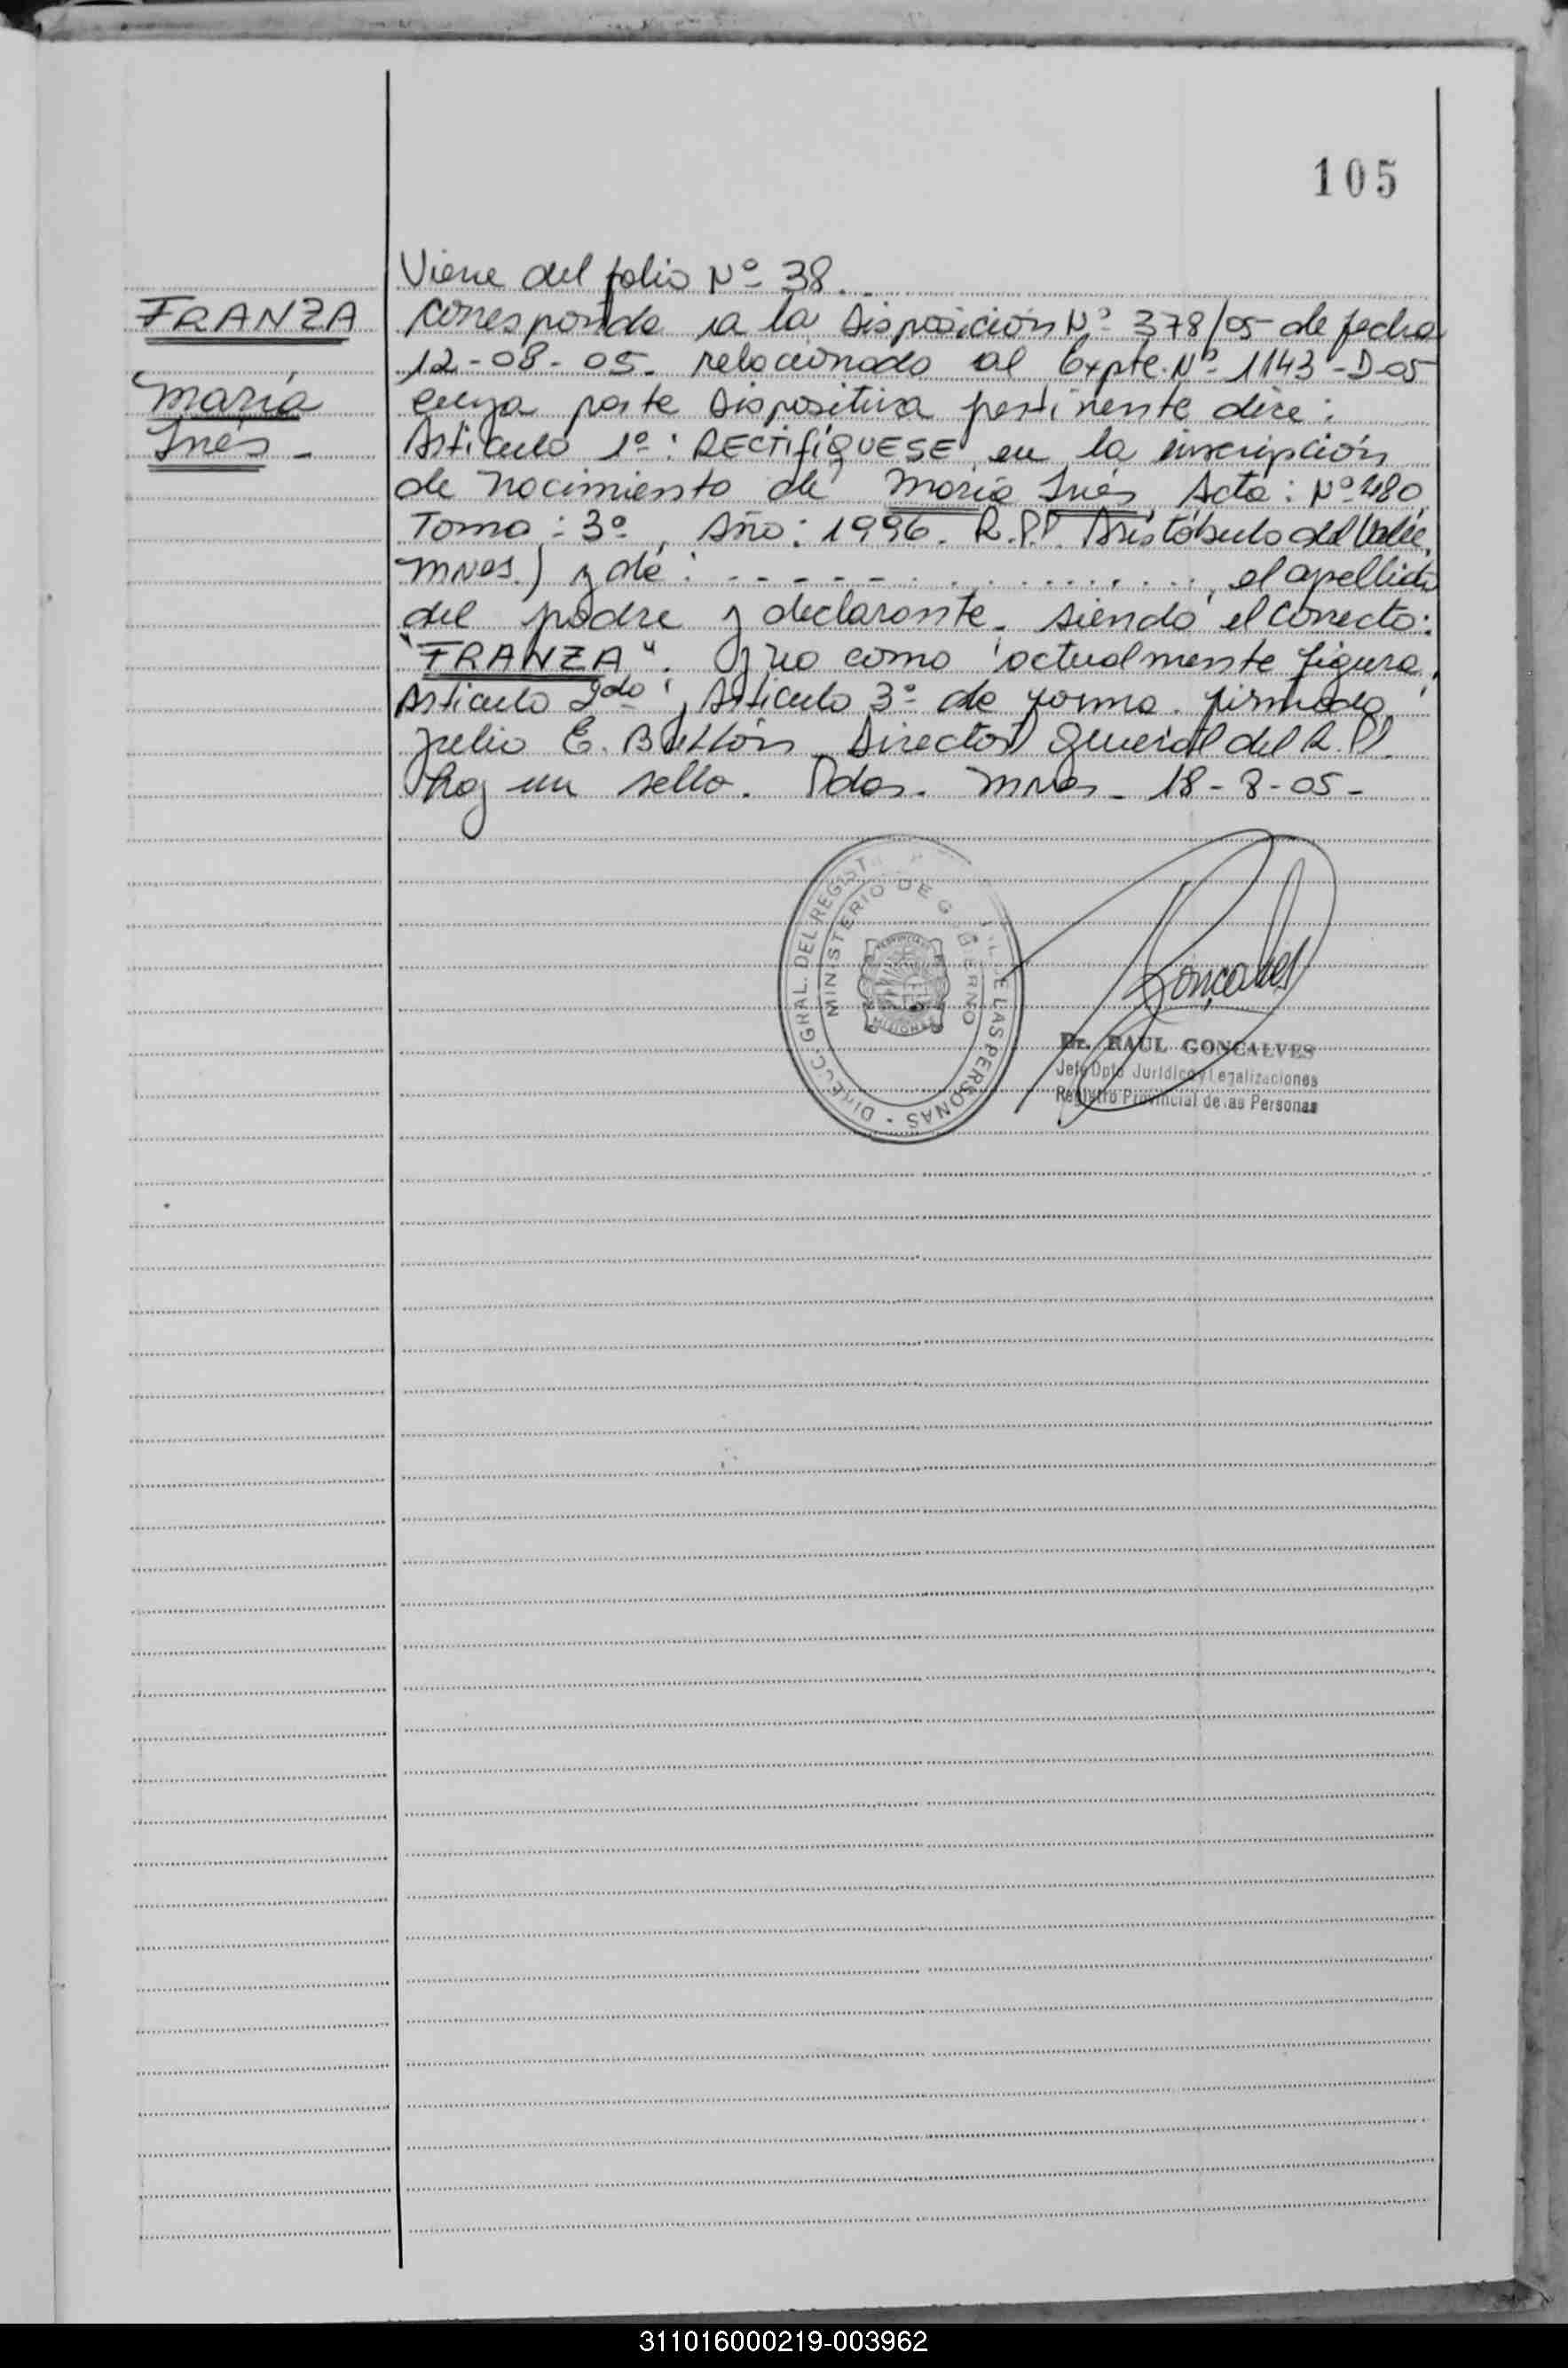 105
Viene del folio Nº 38.
FRANZA
María
Inés -
corresponde a la Disposición Nº 378/05 de fecha
12-08-05. relacionado al Expte. Nº 1143-D-05
cuya parte Dispositiva pertinente dice:
Artículo 1º: RECTIFÍQUESE en la inscripción
de nacimiento de María Inés, Acta: Nº 480,
Tomo: 3º, Año: 1996. R.P.P. Aristóbulo del Valle,
Mnes.) y de: - - - - - . . . . . . . . . , el apellido
del padre y declarante. siendo el correcto:
"FRANZA". y no como actualmente figura.
Artículo 2do, Artículo 3º de forma. firmado
Julio E. Director General del R.P.P.
hay un sello. Pdas. Mnes - 18-8-05-
DIRECC. GRAL. DEL REGIST LAS PERSONAS -
MINISTERIO DE GOBIERNO
MISIONES
Gonçalves
Dr. RAUL GONCALVES
Jefe Dpto Jurídico y Legalizaciones
Registro Provincial de las Personas
311016000219-003962